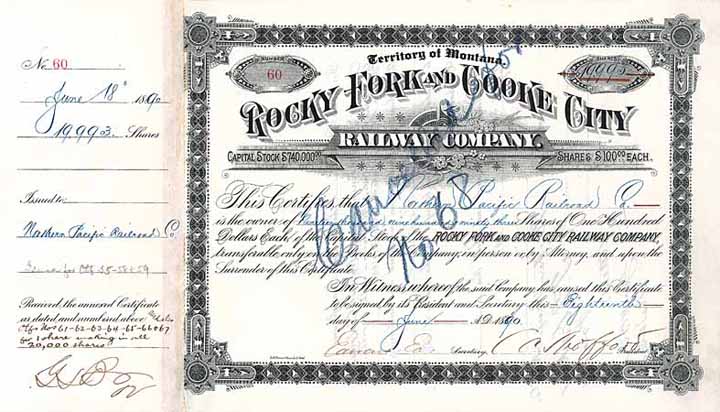 No. 60
June 18th 1890
19993 Shares
Issued to
Northern Pacific Railroad Co.
Received the annexed Certificate
as dated and numbered above
Nos 61-62-63-64-65-66&67
for 1 share making in all
20,000 shares
NUMBER
60
Territory of Montana
SHARES
19993
ROCKY FORK AND COOKE CITY
RAILWAY COMPANY.
CAPITAL STOCK $740,000.00
SHARES $100.00 EACH.
This Certifies that Northern Pacific Railroad Co.
is the owner of Nineteen thousand nine hundred and ninety three Shares of One Hundred
Dollars Each of the Capital Stock of the ROCKY FORK AND COOKE CITY RAILWAY COMPANY,
transferable only on the Books of the Company, in person or by Attorney, and upon the
Surrender of this Certificate.
In Witness whereof the said Company has caused this Certificate
to be signed by its President and Secretary this Eighteenth
day of June A.D. 1890
Secretary.
President
Cancelled
No 68